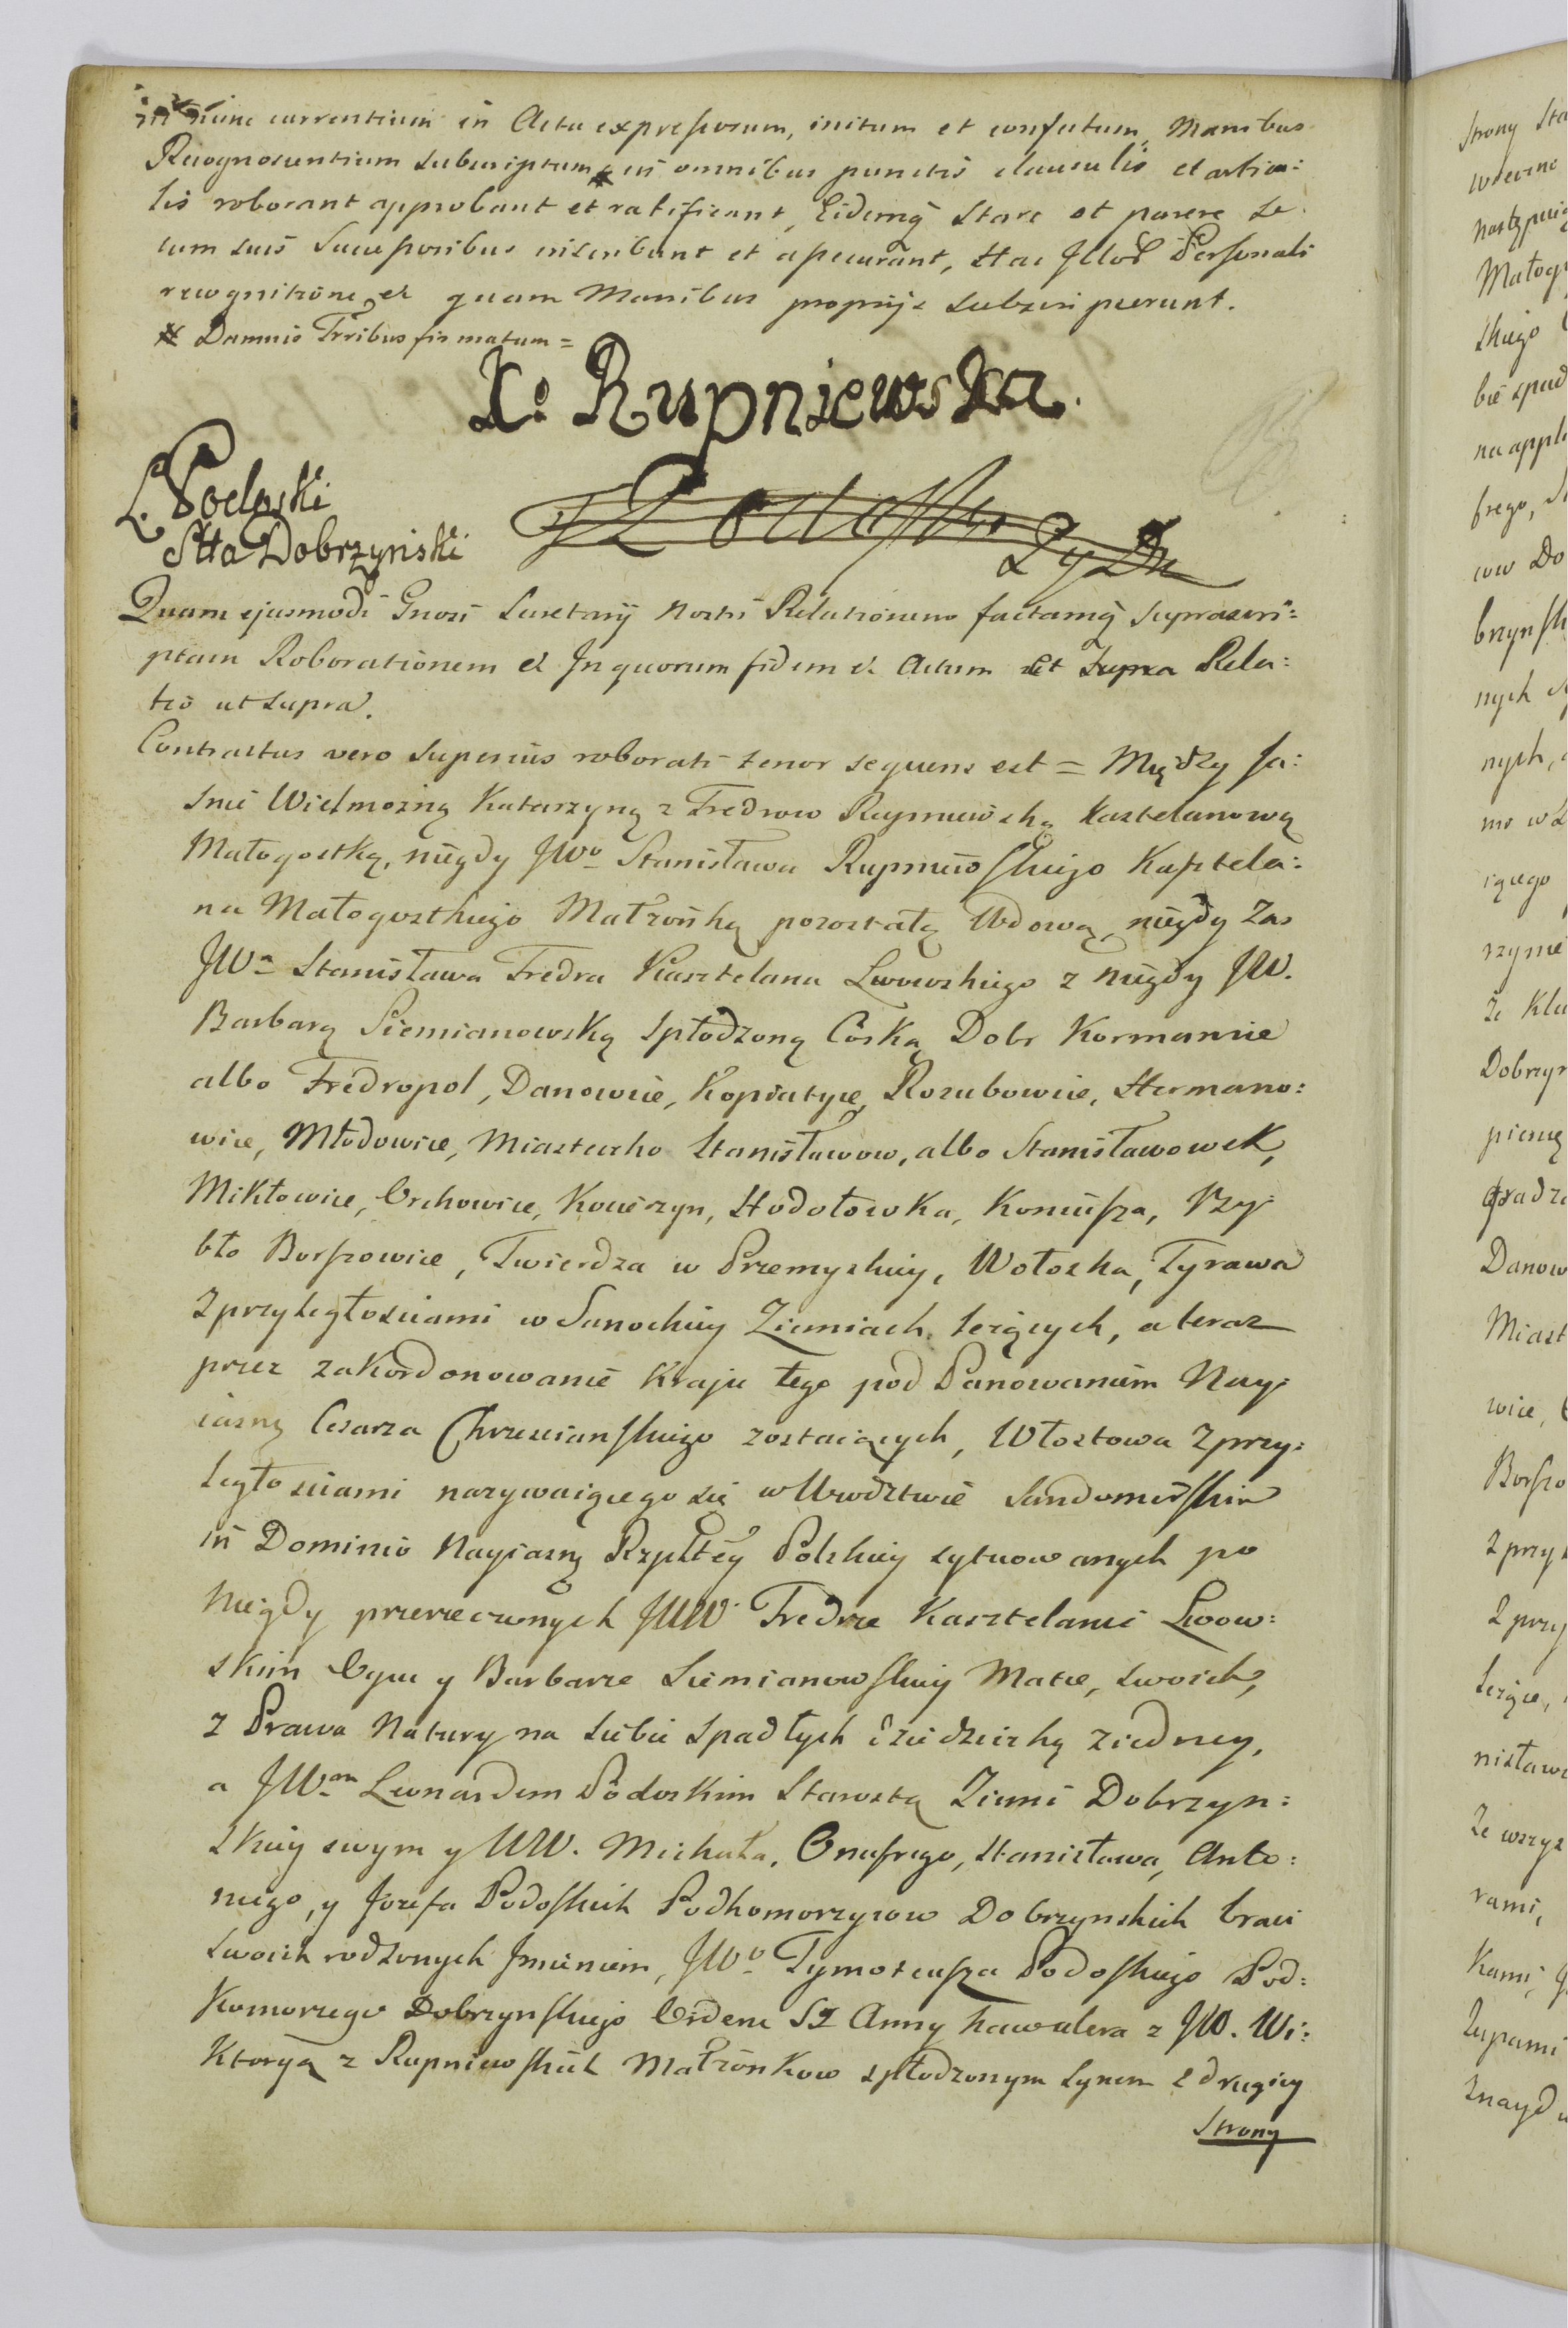 nunc currentium in Acta expressorum, initum et confectum, Manibus
Recognoscentium subscriptum * in omnibus punctis clausulis et articu:
lis roborant approbant et ratificant, Eidemq stare et parere se
cum suis Successoribus inscribunt et assecurant, Hac Illor Personali
recognitione, et quam Manibus proprijs subscripserunt.
* Damnis Trribus firmatum =
K: Rupniewska.
L. Podoski
Stta Dobrzyński
Quam ejusmodi Gnosi Secretarij Nostri Relationem factamq suprascri:
ptam Roborationem et In quorum fidem et Actum ut Supra Rela:
tio ut supra.
Contractus vero superius roborati tenor sequens est = Między Ja:
śnie Wielmożną Katarzyną z Fredrow Rupniewską Kasztelanową
Małogostką, niegdy JWo Stanisława Rupniewskiego Kasztela:
na Małogoskiego Małżonką pozostałą Wdową, niegdy zas
JWa Stanisława Fredra Kasztelana Lwowskiego z niegdy JW.
Barbarą Siemianowską Spłodzoną Corką Dobr Kormanice
albo Fredropol, Danowice, Kopiatyce, Rozubowice, Hermano:
wice, Młodowice, Miasteczko Stanisławow, albo Stanisławowek,
Mikłowice, Orchowice, Kocierzyn, Hodołowka, Koniusza, Pzy
bło Borszowice, Twierdza w Przemyskiey, Wołoska, Tyrawa
z przyległosciami w Sanockiey Ziemiach leżących, a teraz
przez zakordonowanie Kraju tego pod Panowaniem Nay
iasny Cesarza Chrzescianskiego zostaiących, Włostowa z przy:
ległosciami nazywaiącego się w Wwodztwie Sandomirskim
in Dominio Nayiasny Rzpltey Polskiey sytuowanych po
Niegdy przerzeczonych JWW Fredrze Kasztelanie Lwow:
skim Oycu y Barbarze Siemianowskiey Matce, swoich,
z Prawa Natury na siebie spadłych dziedziczką z iedney,
a JWam Leonardem Podoskim Starostą Ziemi Dobrzyn:
skiey swym y WW. Michała, Onufrego, Stanisława, Anto:
niego, y Jozefa Podoskich Podkomorzycow Dobrzynskich braci
swoich rodzonych Imieniem, JWo Tymoteusza Podoskiego Pod:
komorzego Dobrzynskiego Orderu S. Anny kawalera z JW. Wi:
ktoryą z Rupniewskich Małżonkow spłodzonym synem z drugiey
Strony